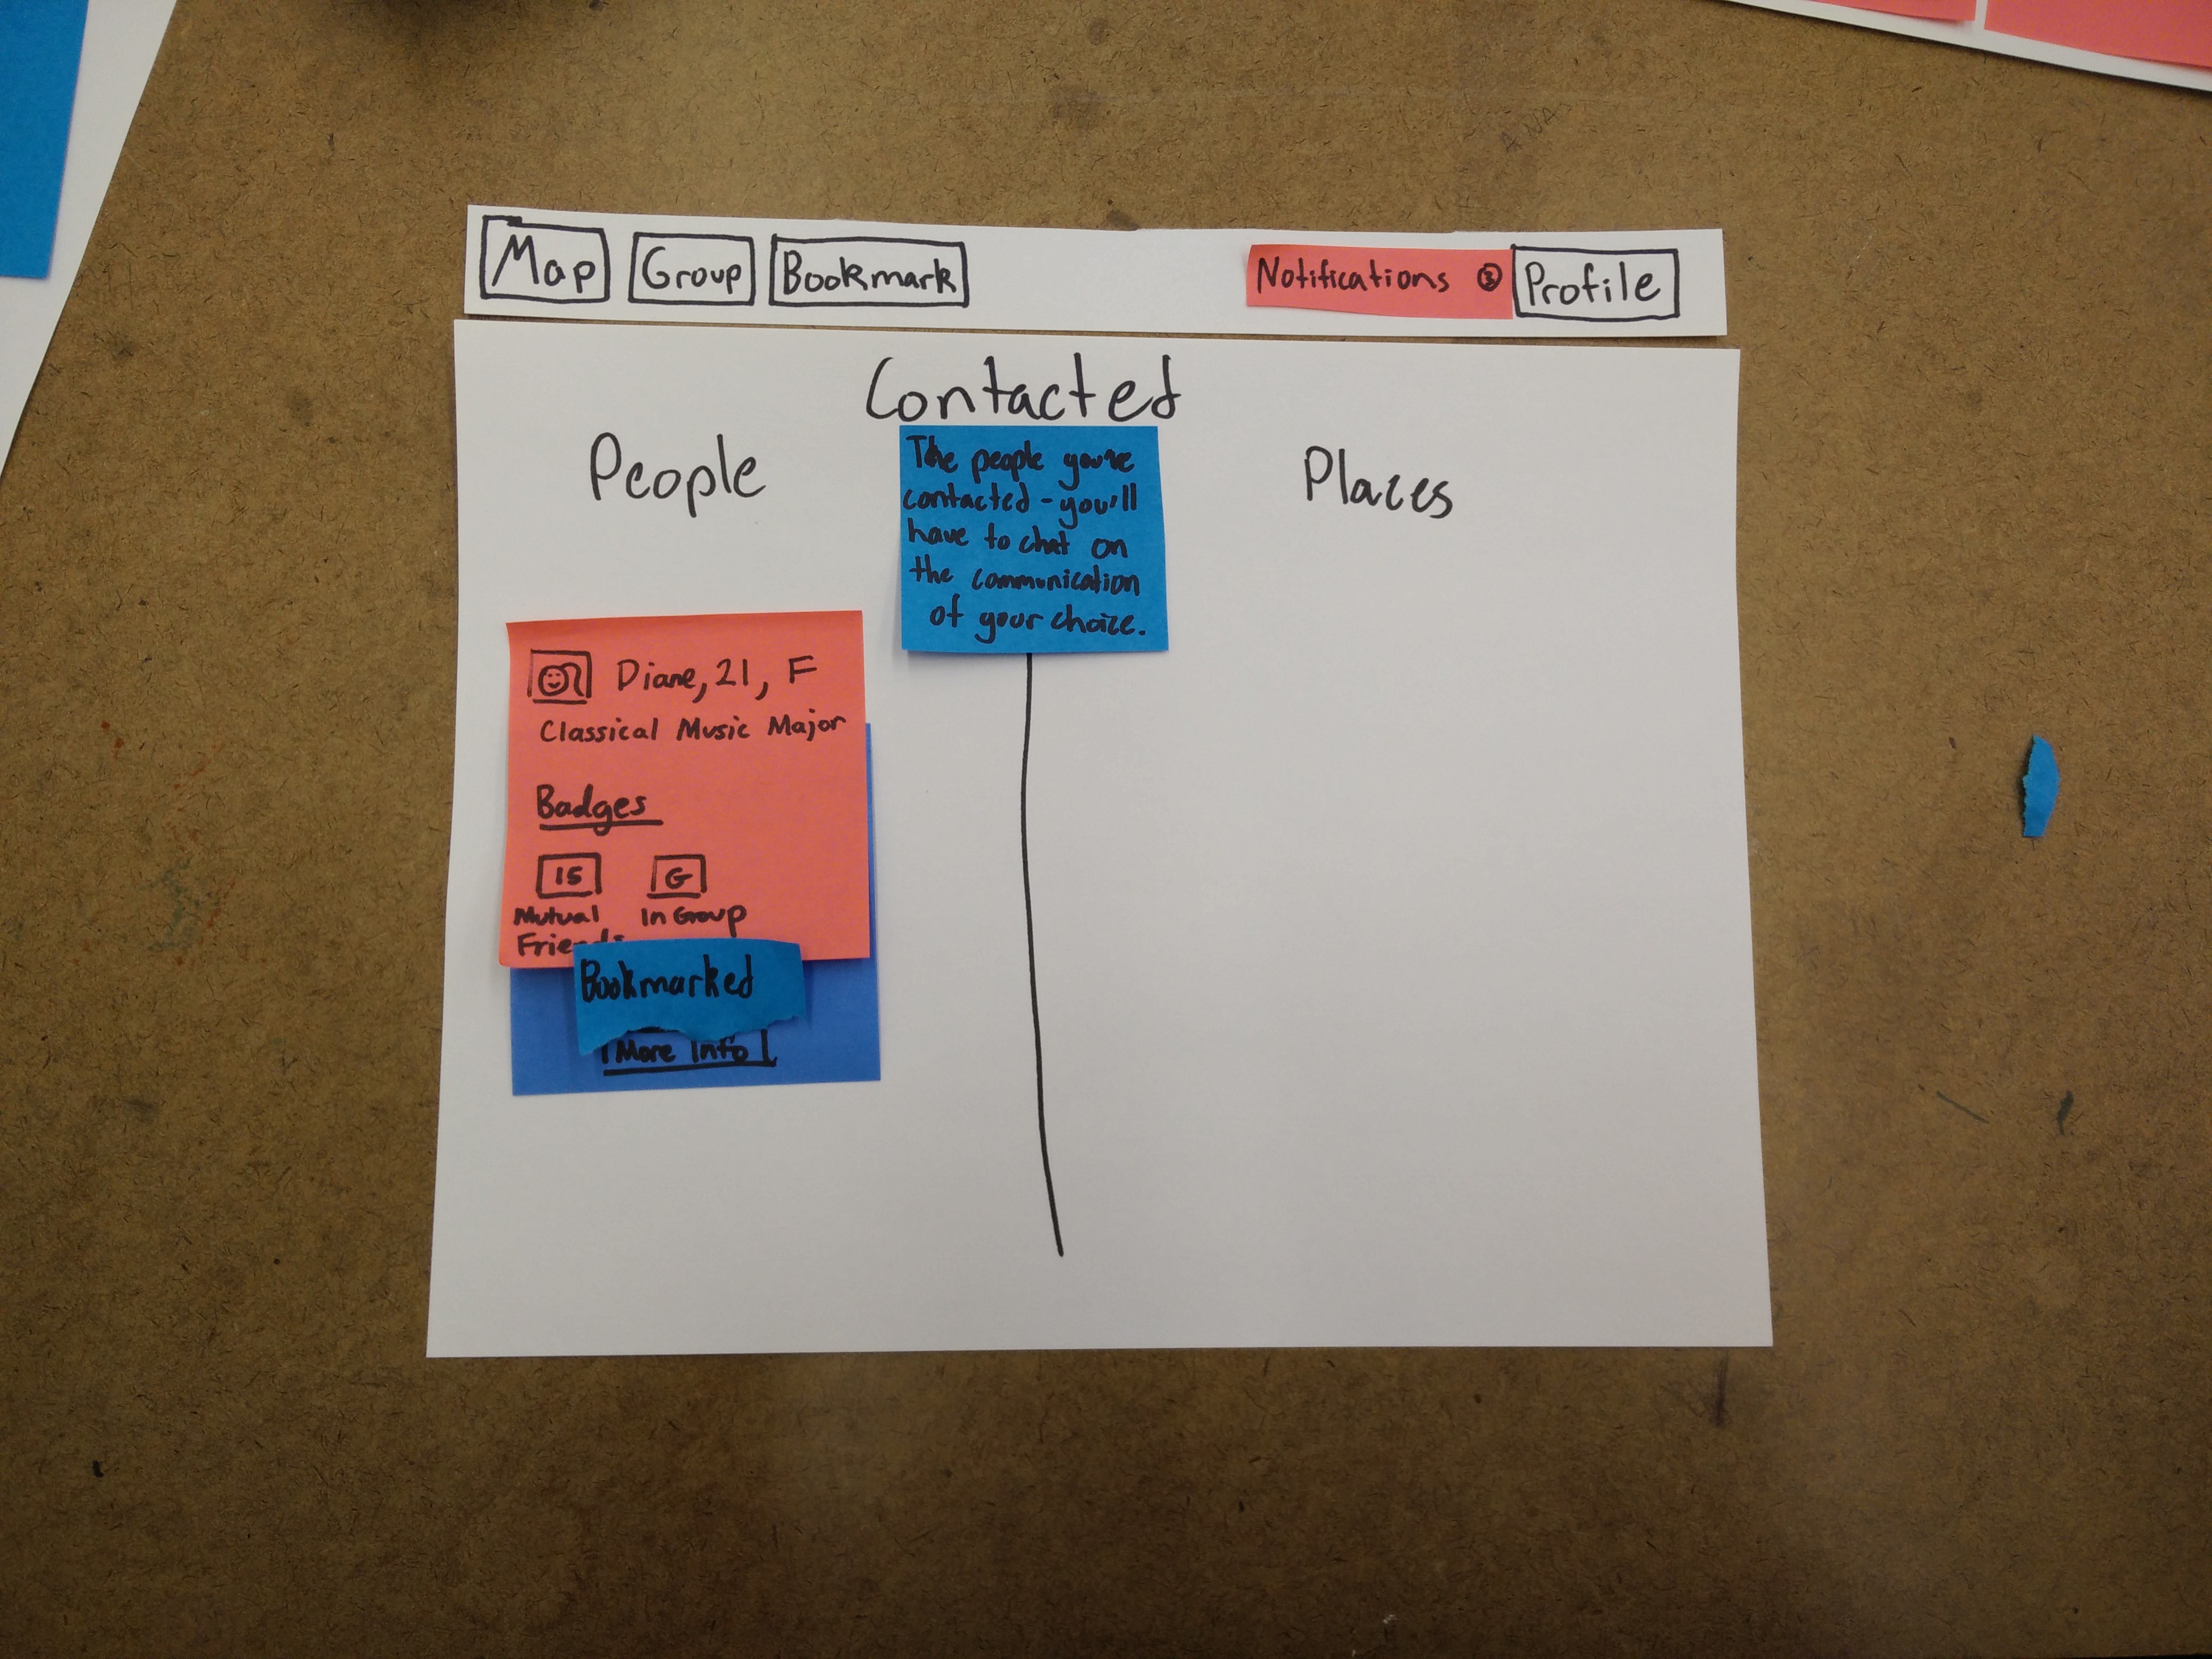 Map Group Bookmark Notifications 3 Profile
Contacted
People
Places
The people you've
contacted - you'll
have to chat on
the communication
of your choice.
Diane, 21, F
Classical Music Major
Badges
15 G
Mutual In Group
Friends
Bookmarked
More Info